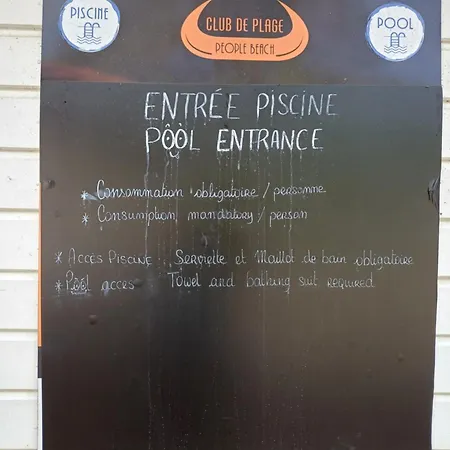 PISCINE
CLUB DE PLAGE
PEOPLE BEACH
POOL
ENTRÉE PISCINE
PÔÒL ENTRANCE
* Consommation obligatoire / personne
* Consumption mandatory / person
* ACCÈS PISCINE : Serviette et Maillot de bain obligatoire
* Pool acces : Towel and bathing suit required